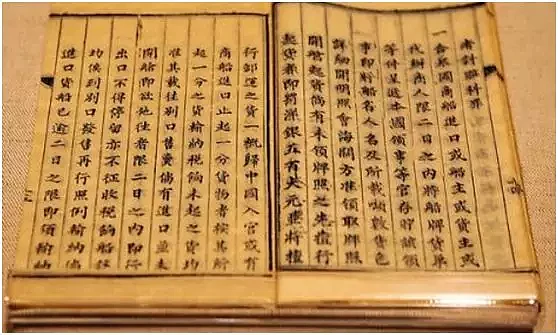 者討賠科罪
一合衆國商船進口或船主或貨主或
代辦商人限二日之內將船牌貨單
等件呈遞本國領事等官存貯該領
事即將船名人名及所載噸數貨色
詳細開明照會海關方准領取牌照
開艙起貨倘有未領牌照之先擅行
起貨者即罰洋銀五百大元並將擅
行卸運之貨一概歸中國入官或有
商船進口止起一分貨物者按其所
起一分之貨輸納稅餉倘未起之貨均
准其載往別口售賣倘有進口並未
開艙即欲他往者限二日之內即行
出口不得停留亦不征收稅餉船鈔
均俟到別口發售再行照例輸納倘
進口貨船已逾二日之限即須輸納